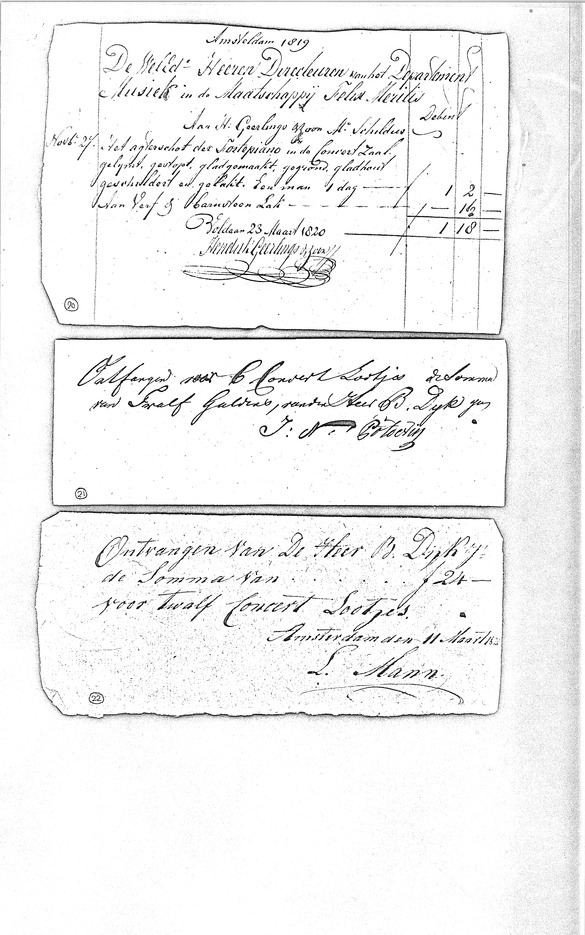 Amsterdam 1819
De WelEd: Heeren Directeuren van het Departement
Musiek in de Maatschappij Felix Meritis
Debent
Aan H: Geerlings & Zoon Mr Schilders
Novb: 27. Het agterschot der Fortepiano in de Concert Zaal.
gelymt, gestopt, gladgemaakt, gegrond, gladhout
geschildert en gelakt. Een man 1 dag — 1 2 —
Aan Verf & Barnsteen Lak — — 16 —
1 18 —
Voldaan 23 Maart 1820
Hendrik Geerlings & Zoon
20
Ontfangen voor 6 Convert Lootjes de Somma
van Twalf Guldens, van den Heer B. Dyk
J: N:
21
Ontvangen Van De Heer B. Dijk Jr
de Somma van . . . . . ƒ 24 —
voor twalf Concert Lootjes.
Amsterdam den 11 Maart
L. Mann.
22